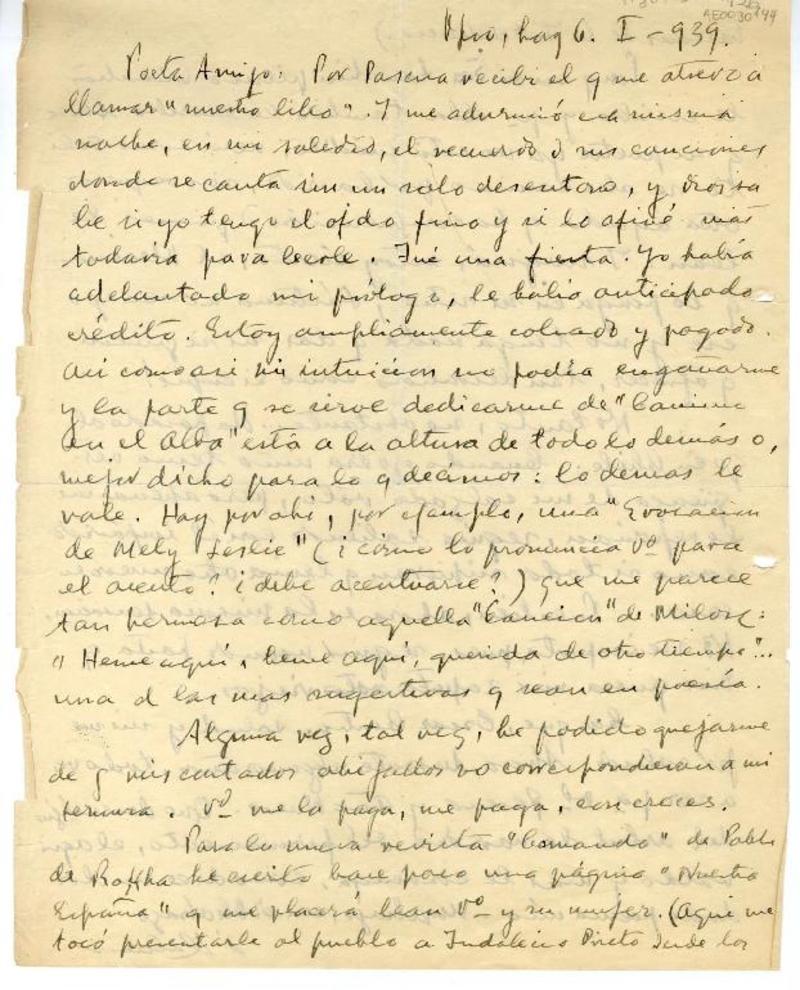 AE0030144
Vpso, hoy 6. I - 939.
Poeta Amigo: Por Pascua recibí el q me atrevo a
llamar "nuestro libro". Y me adurmió esa misma
noche, en mi soledad, el recuerdo d sus canciones
donde se canta sin un solo desentono, y Dios sa
be si yo tengo el oído fino y si lo afiné más
todavía para leerle. Fué una fiesta. Yo había
adelantado mi prólogo, le había anticipado
crédito. Estoy ampliamente cobrado y pagado.
Así como así mi intuición no podía engañarme
y la parte q se sirve dedicarme de "Camino
en el Alba" está a la altura de todo lo demás o,
mejor dicho para lo q decimos: lo demás le
vale. Hay por ahí, por ejemplo, una "Evocación
de Mely Leslie" (¿cómo lo pronuncia Vd para
el acento? ¿debe acentuarse?) que me parece
tan hermosa como aquella "Canción" de Milosz:
"Heme aquí, heme aquí, querida de otro tiempo"...
una d las mas sugestivas q sean en poesía.
Alguna vez, tal vez, he podido quejarme
de q mis contados ahijados no correspondieran a mi
ternura. Vd me la paga, me paga, con creces.
Para la nueva revista "Comando" de Pablo
de Rokha he escrito hace poco una página "Nuestra
España" q me placerá lean Vd y su mujer. (Aquí me
tocó presentarle al pueblo a Indalecio Prieto desde los